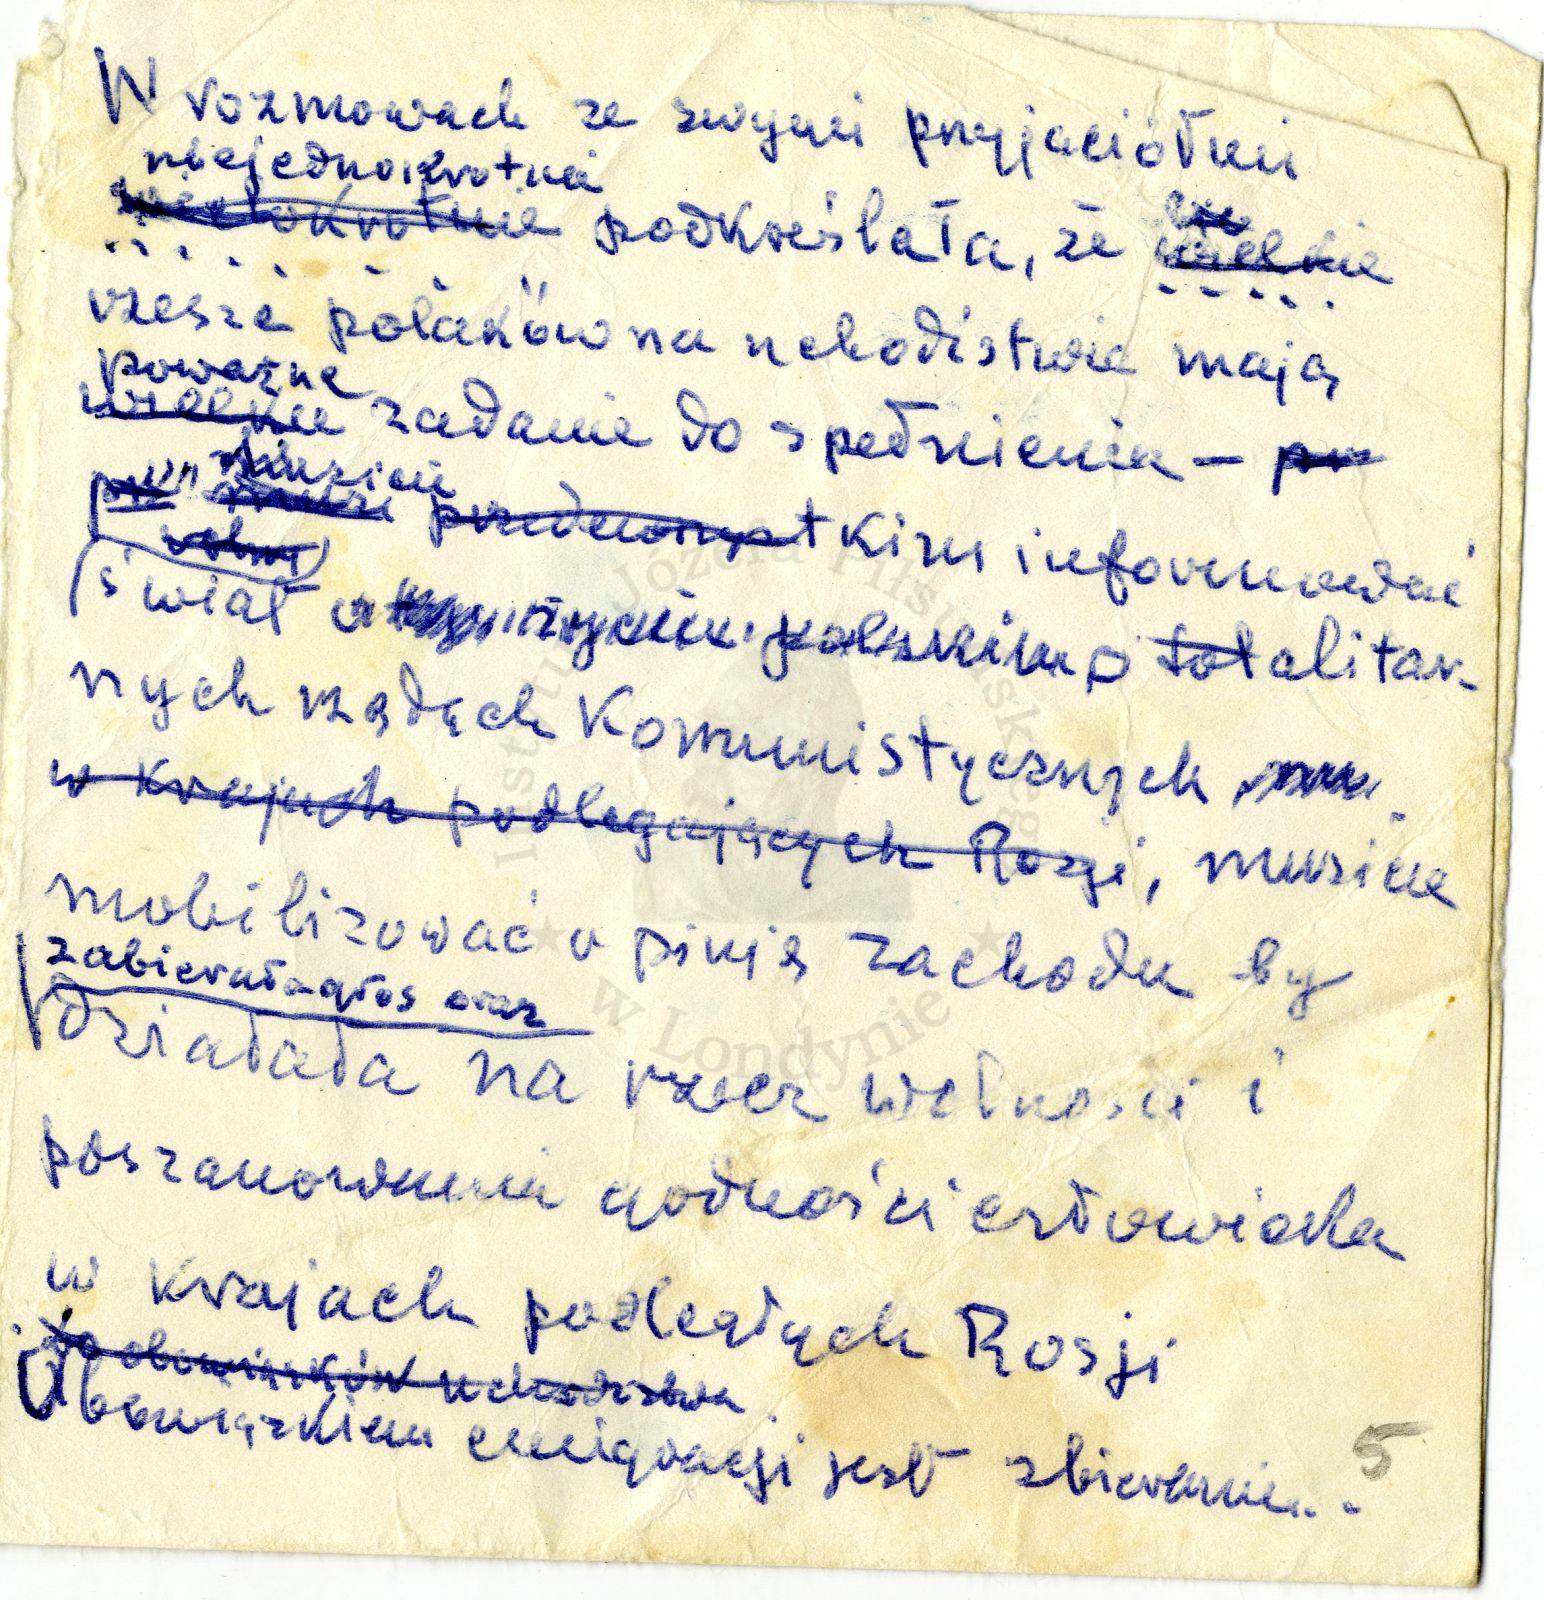 W rozmowach ze swymi przyjaciółmi
niejednokrotnie
wielokrotnie podkreślała, że wielkie
rzesze polaków na uchodźstwie mają
poważne
wielkie zadanie do spełnienia – po
musicie
przedewszystkim informować
świat o życiu polskim o totalitar-
nych rządach komunistycznych
w krajach podlegających Rosji, musicie
mobilizować opinję zachodu by
zabierała głos oraz
działała na rzecz wolności i
poszanowania godności człowieka
w krajach podległych Rosji
Obowiązkiem emigracji jest zbieranie..
5
Instytut Józefa Piłsudskiego
w Londynie